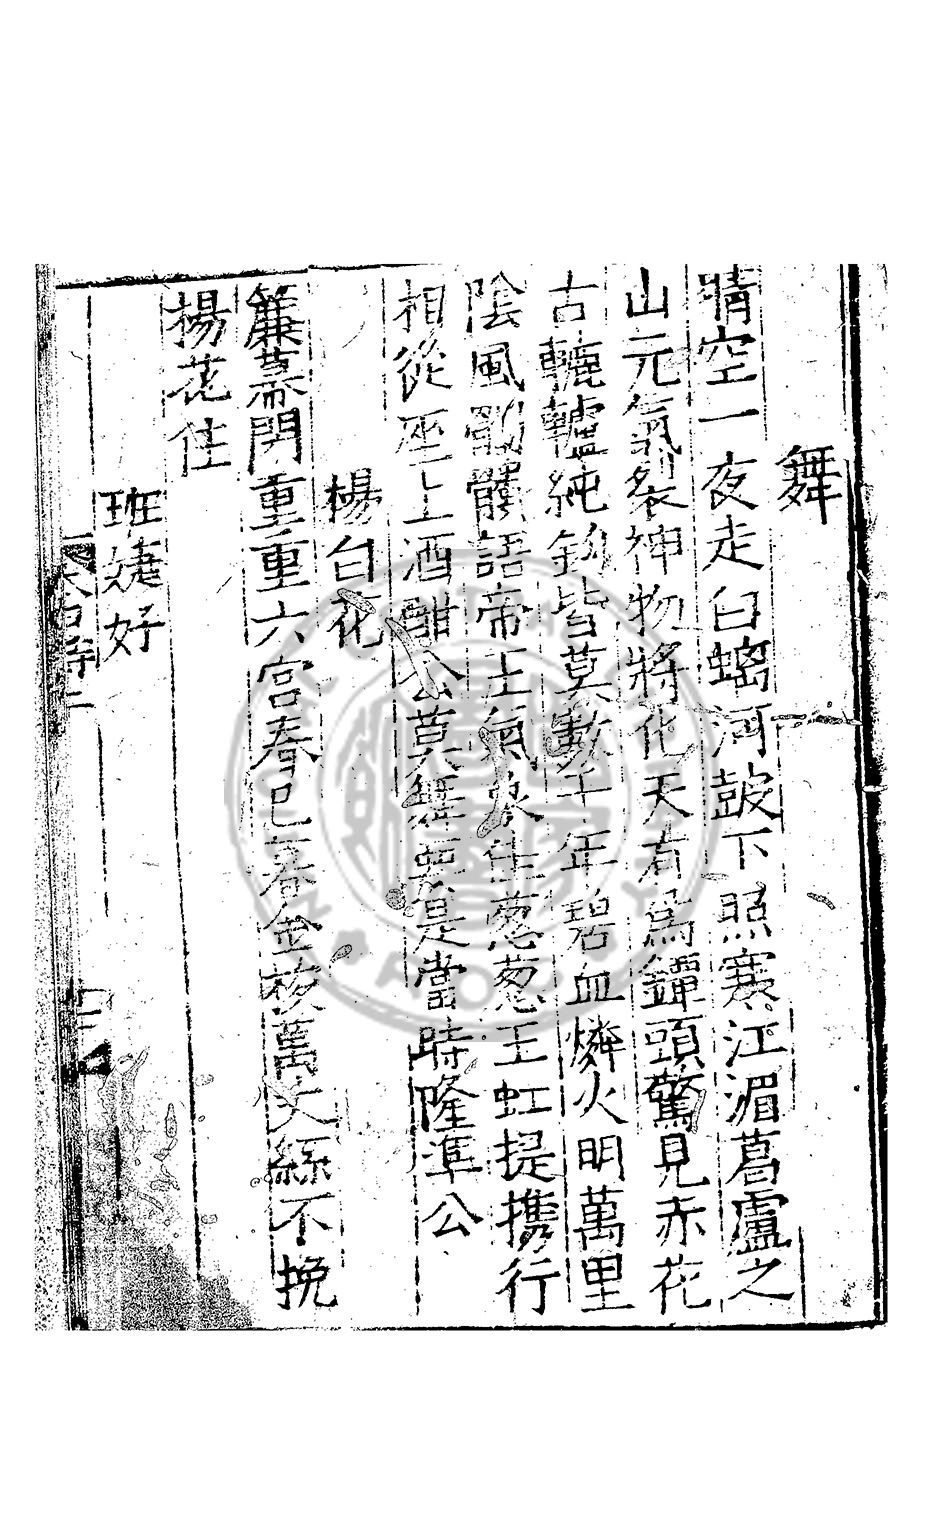 舞
晴空一夜走白螭河鼓下照寒江湄葛盧之
山元氣裂神物將化天有爲鐔頭驚見赤花
古轆轤純鈎皆莫數千年碧血燐火明萬里
陰風髑髏語帝王氣象生葱葱玉虹提携行
相從座上酒酣公莫舞要是當時隆準公
楊白花
簾幕閉重重六宮春已暮金梭萬丈絲不挽
楊花住
班婕妤